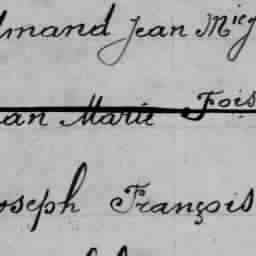 dmand Jean Mie
an Marie Fois
oseph François